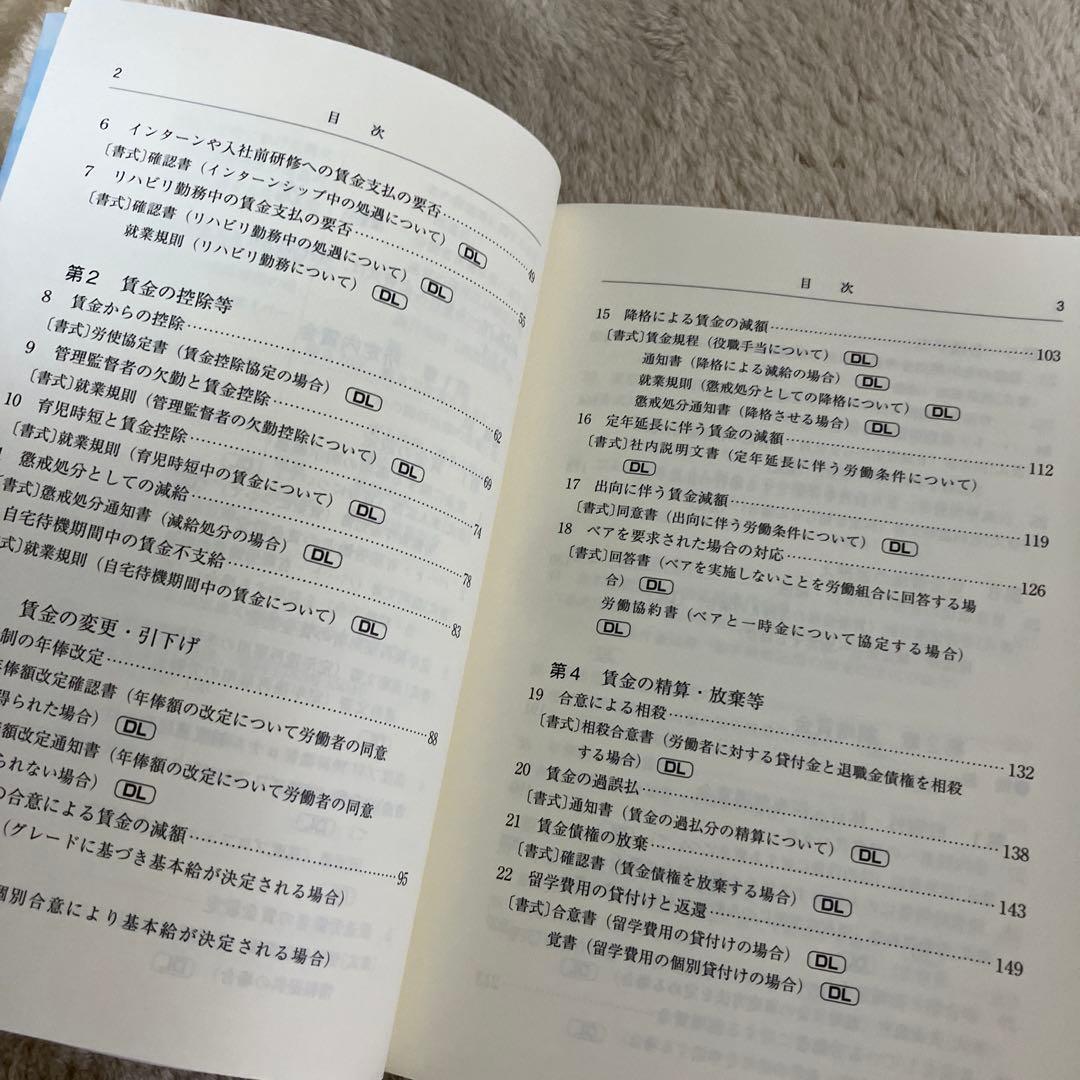 2
目次
6 インターンや入社前研修への賃金支払の要否……49
〔書式〕確認書（インターンシップ中の処遇について） DL
7 リハビリ勤務中の賃金支払の要否……56
〔書式〕確認書（リハビリ勤務中の処遇について） DL
就業規則（リハビリ勤務について） DL
第2 賃金の控除等
8 賃金からの控除……62
〔書式〕労使協定書（賃金控除協定の場合） DL
9 管理監督者の欠勤と賃金控除……69
〔書式〕就業規則（管理監督者の欠勤控除について） DL
10 育児時短と賃金控除……74
〔書式〕就業規則（育児時短中の賃金について） DL
懲戒処分としての減給……78
書式〕懲戒処分通知書（減給処分の場合） DL
自宅待機期間中の賃金不支給……83
式〕就業規則（自宅待機期間中の賃金について） DL
賃金の変更・引下げ
制の年俸改定……88
年俸額改定確認書（年俸額の改定について労働者の同意
得られた場合） DL
額改定通知書（年俸額の改定について労働者の同意
られない場合） DL
の合意による賃金の減額……95
（グレードに基づき基本給が決定される場合）
個別合意により基本給が決定される場合）
目次
3
15 降格による賃金の減額……103
〔書式〕賃金規程（役職手当について） DL
通知書（降格による減給の場合） DL
就業規則（懲戒処分としての降格について） DL
懲戒処分通知書（降格させる場合） DL
16 定年延長に伴う賃金の減額……112
〔書式〕社内説明文書（定年延長に伴う労働条件について）
DL
17 出向に伴う賃金減額……119
〔書式〕同意書（出向に伴う労働条件について） DL
18 ベアを要求された場合の対応……126
〔書式〕回答書（ベアを実施しないことを労働組合に回答する場
合） DL
労働協約書（ベアと一時金について協定する場合）
DL
第4 賃金の精算・放棄等
19 合意による相殺……132
〔書式〕相殺合意書（労働者に対する貸付金と退職金債権を相殺
する場合） DL
20 賃金の過誤払……138
〔書式〕通知書（賃金の過払分の精算について） DL
21 賃金債権の放棄……143
〔書式〕確認書（賃金債権を放棄する場合） DL
22 留学費用の貸付けと返還……149
〔書式〕合意書（留学費用の貸付けの場合） DL
覚書（留学費用の個別貸付けの場合） DL